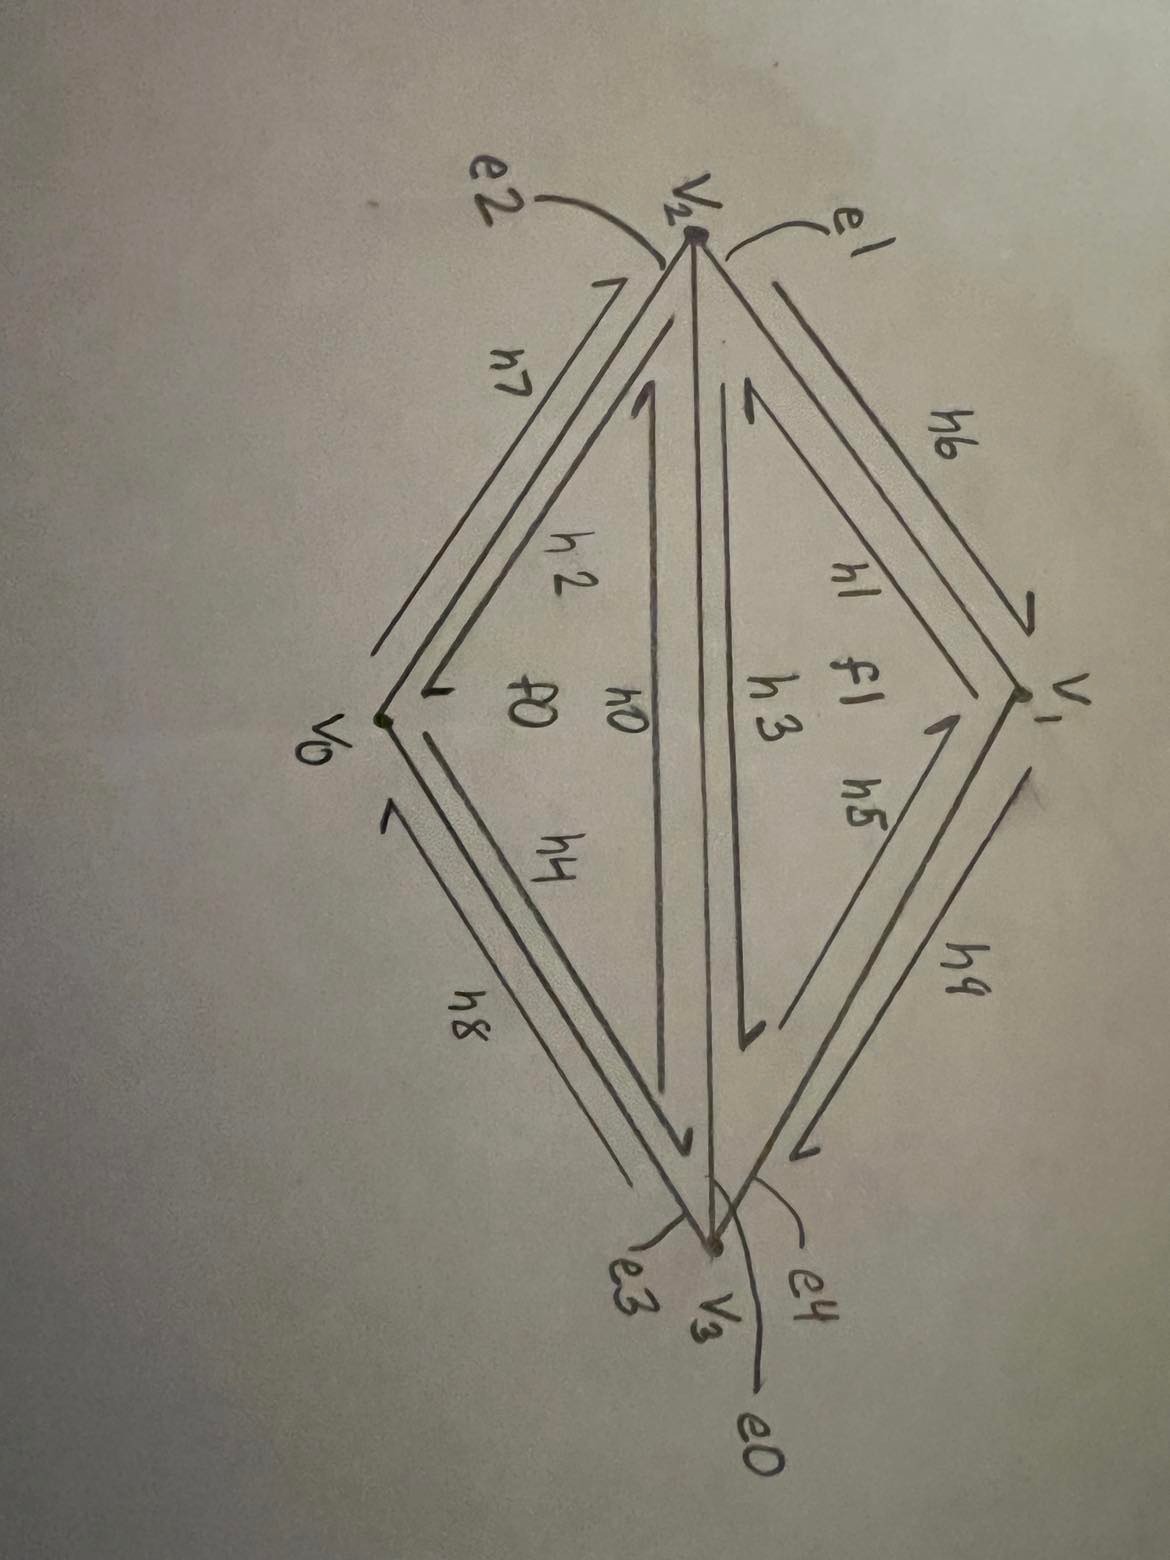 V1
h6
h9
e1
h1 f1 h5
e4
h3
e0
V2
V3
h0
e3
h2
h4
f0
e2
h7
h8
V0